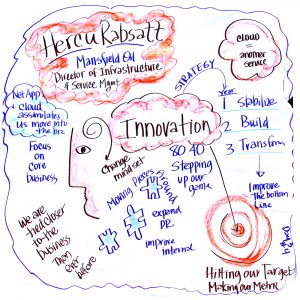 Hercu Rabsatt
Mansfield Oil
Director of Infrastructure
& Service Mgmt
CLOUD
=
another
service
STRATEGY
Year
1 Stabilize
2 Build
3 Transform
Improve
The bottom
Line
Net App
cloud
assimilates
us more into
the biz
Focus
on
Core
business
Innovation
Change
mindset
80 40
Stepping
up our
game
Moving Pieces
around
expand
DR
improve
internal
We are
tied closer
to the
business
Then
ever
before
Hitting our Target
Making our Metric